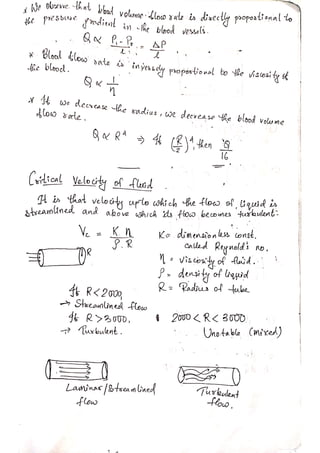 * We observe that blood volume flow rate is directly proportional to
the pressure gradient in the blood vessels.
Q ∝ P₁ - P₂ / l = ΔP / l
* Blood flow rate is inversely proportional to the viscosity of
the blood.
Q ∝ 1 / η
* If we decrease the radius, we decrease the blood volume
flow rate.
Q ∝ R⁴ ⇒ If (R/2)⁴, then Q/16
Critical Velocity of fluid
It is that velocity upto which the flow of liquid is
streamlined and above which its flow becomes turbulent:
Vc = K η / ρ . R
K = dimensionless const.
called Reynold's no.
R
η = viscosity of fluid.
ρ = density of liquid
R = Radius of tube
If R < 2000,
→ Streamlined flow
If R > 3000,
→ Turbulent.
2000 < R < 3000
Unstable (mixed)
Laminar/Streamlined
flow
Turbulent
flow.